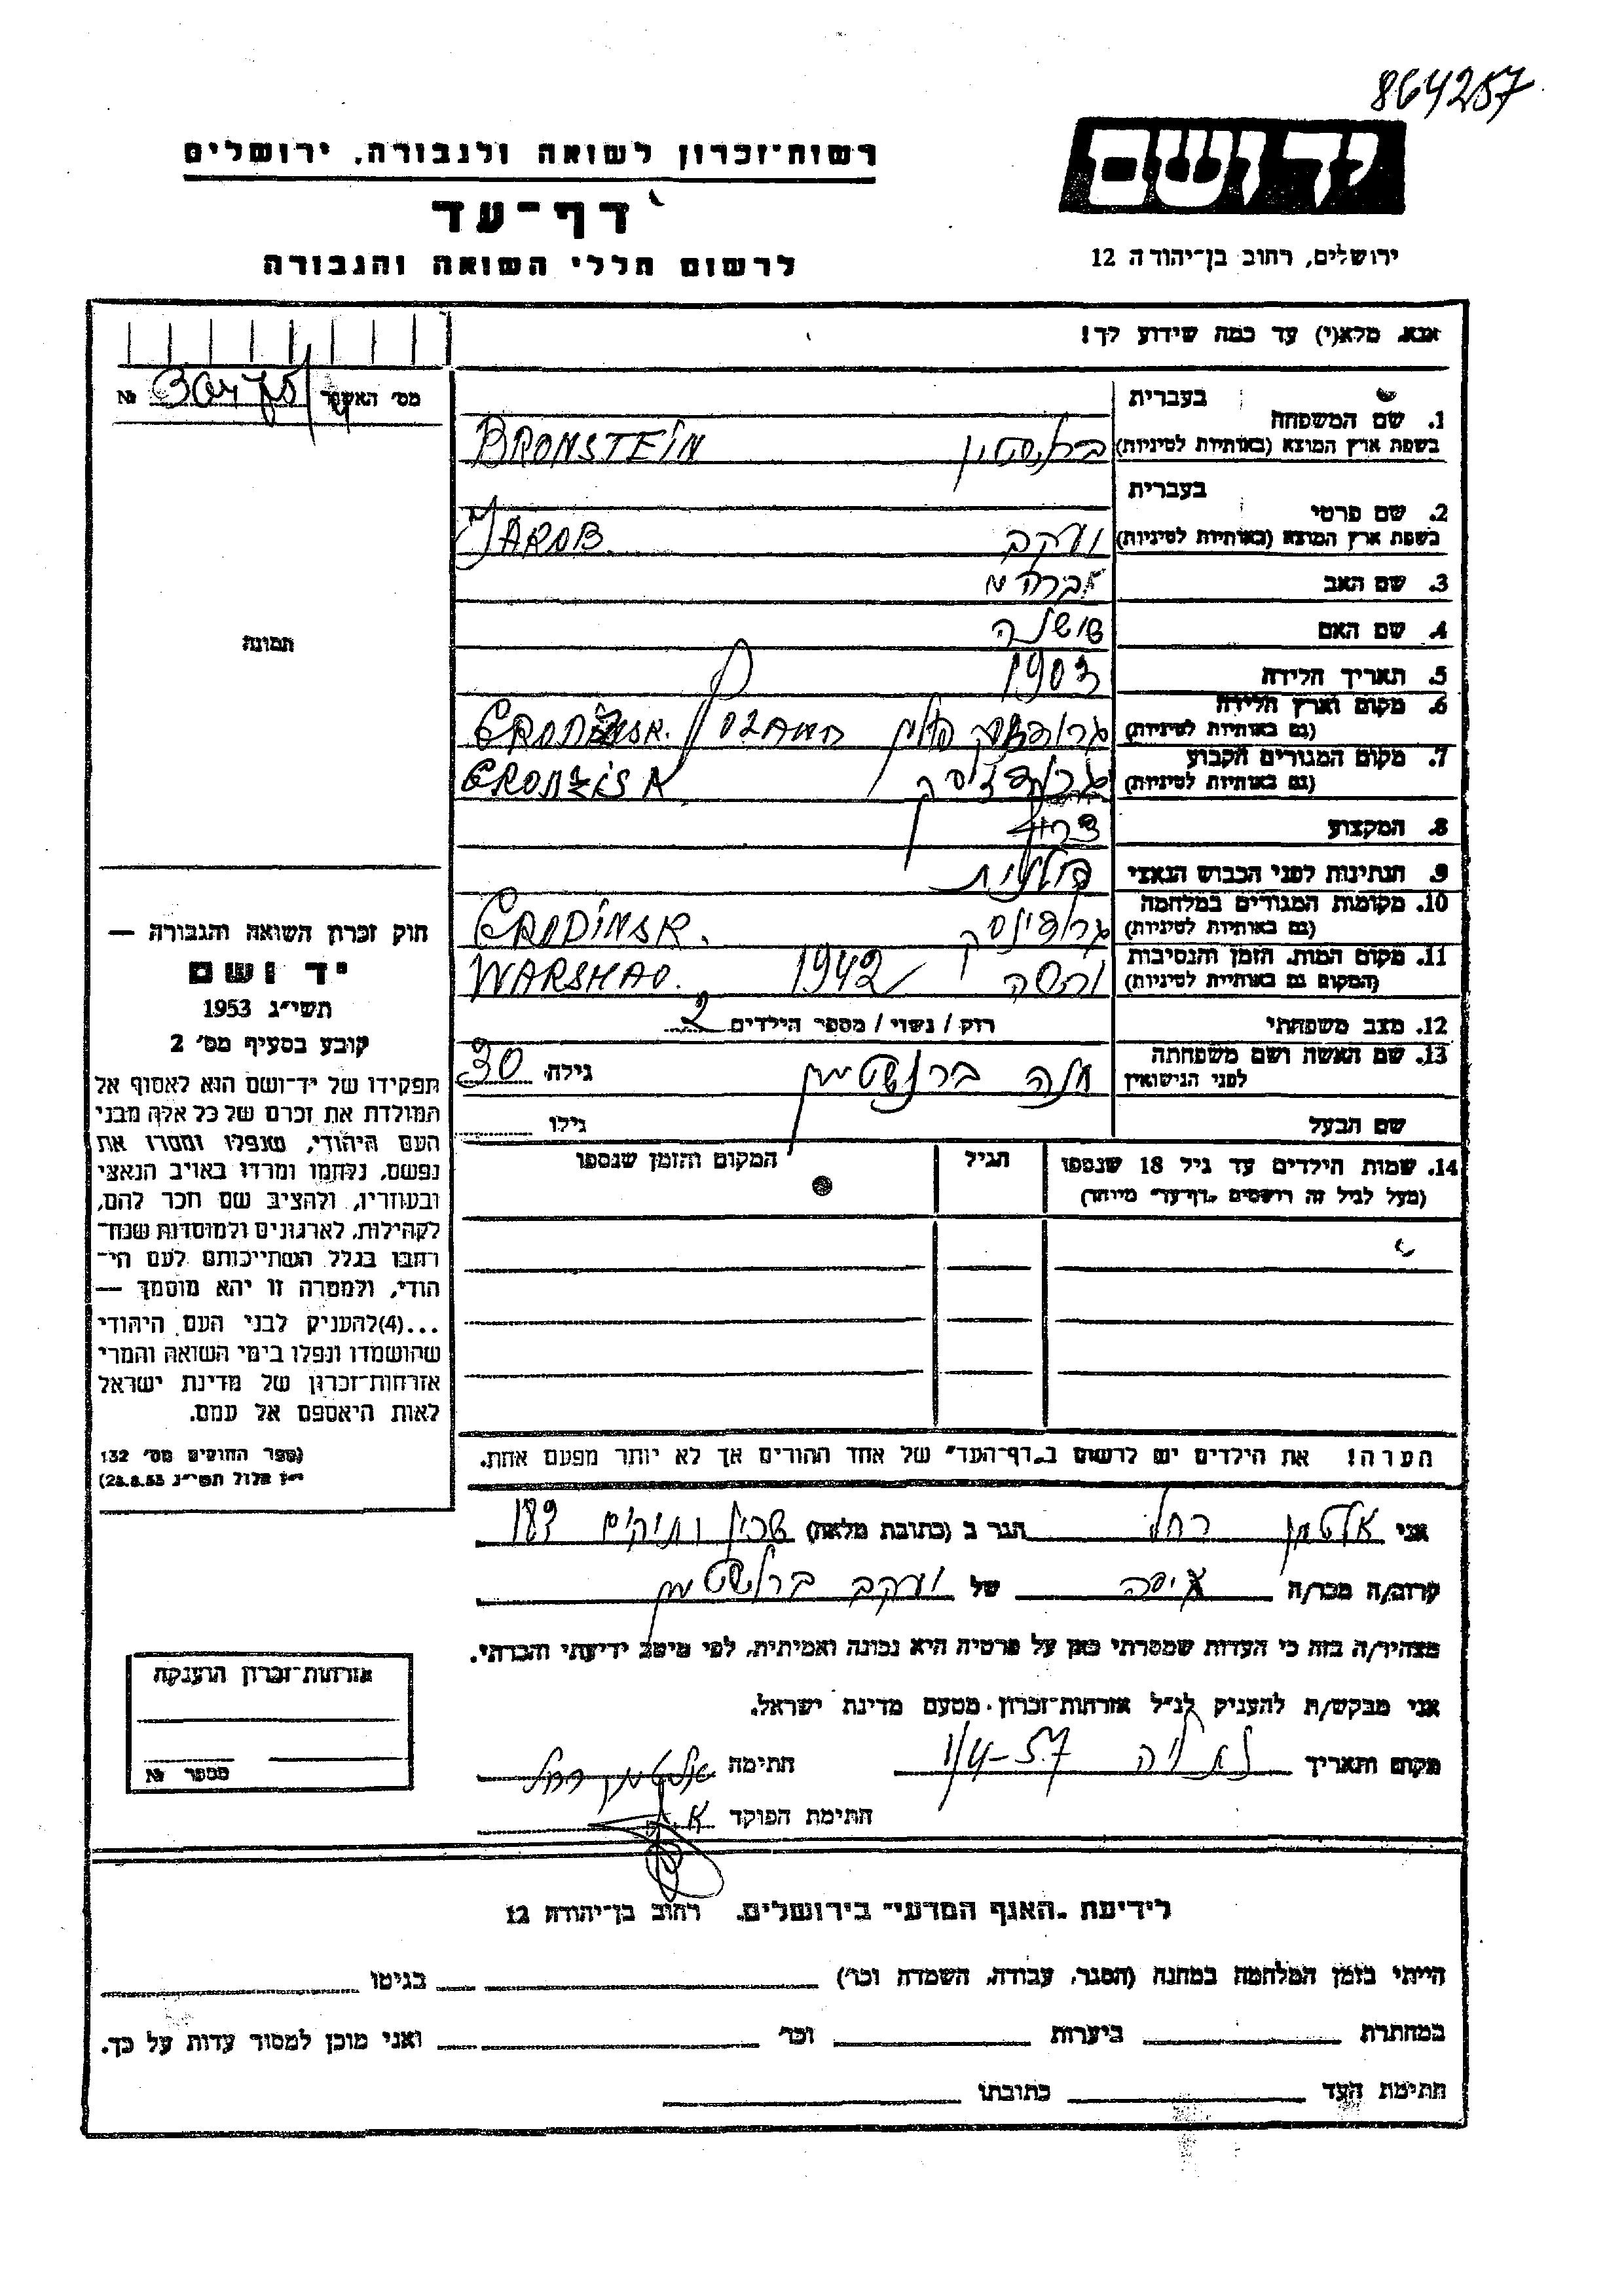 864257
רשות־זכרון לשואה ולגבורה, ירושלים
יד ושם
דף־עד
ירושלים, רחוב בן־יהודה 12
לרשום חללי השואה והגבורה
אנא, מלא(י) עד כמה שידוע לך!
מס' האשנר №
בעברית
1. שם המשפחה
בשפת ארץ המוצא (באותיות לטיניות) BRONSTEIN
בעברית
2. שם פרטי
בשפת ארץ המוצא (באותיות לטיניות) יעקב JAKOB
3. שם האב אברהם
4. שם האם שושנה
תמונה
5. תאריך הלידה 1903
6. מקום וארץ הלידה
(גם באותיות לטיניות)
7. מקום המגורים הקבוע
(גם באותיות לטיניות)
8. המקצוע
9. הנתינות לפני הכבוש הנאצי פולנית
10. מקומות המגורים במלחמה
(גם באותיות לטיניות) GRODINSK.
11. מקום המות, הזמן והנסיבות
(המקום גם באותיות לטיניות) ורשה 1942 WARSHAO.
12. מצב משפחתי רוק / נשוי / מספר הילדים 2
13. שם האשה ושם משפחתה
לפני הנישואין ברונשטיין גילה 30
שם הבעל גילו
14. שמות הילדים עד גיל 18 שנספו הגיל המקום והזמן שנספו
(מעל לגיל זה רושמים "דף־עד" מיוחד)
חוק זכרון השואה והגבורה —
יד ושם
תשי״ג 1953
קובע בסעיף מס' 2
תפקידו של יד־ושם הוא לאסוף אל
המולדת את זכרם של כל אלה מבני
העם היהודי, שנפלו ומסרו את
נפשם, נלחמו ומרדו באויב הנאצי
ובעוזריו, ולהציב שם וזכר להם,
לקהילות, לארגונים ולמוסדות שנח־
רבו בגלל השתייכותם לעם הי־
הודי, ולמטרה זו יהא מוסמך —
...(4) להעניק לבני העם היהודי
שהושמדו ונפלו בימי השואה והמרי
אזרחות־זכרון של מדינת ישראל
לאות היאספם אל עמם.
(ספר החוקים מס' 132
י״ז אלול תשי״ג 28.8.53)
הערה! את הילדים יש לרשום ב"דף־העד" של אחד ההורים אך לא יותר מפעם אחת.
אני אלטמן רחל הגר ב (כתובת מלאה) שכון ותיקים 183
קרוב/ה מכר/ה של יעקב ברונשטיין
מצהיר/ה בזה כי העדות שמסרתי כאן על פרטיה היא נכונה ואמיתית, לפי מיטב ידיעתי והכרתי.
אני מבקש/ת להעניק לנ״ל אזרחות־זכרון מטעם מדינת ישראל.
מקום ותאריך 1/4-57 חתימה אלטמן רחל
חתימת הפוקד
אזרחות־זכרון הוענקה
מספר №
לידיעת "האגף המדעי" בירושלים, רחוב בן־יהודה 12
הייתי בזמן המלחמה במחנה (הסגר, עבודה, השמדה וכו') בגיטו
במחתרת ביערות וכו' ואני מוכן למסור עדות על כך.
חתימת העד כתובתו